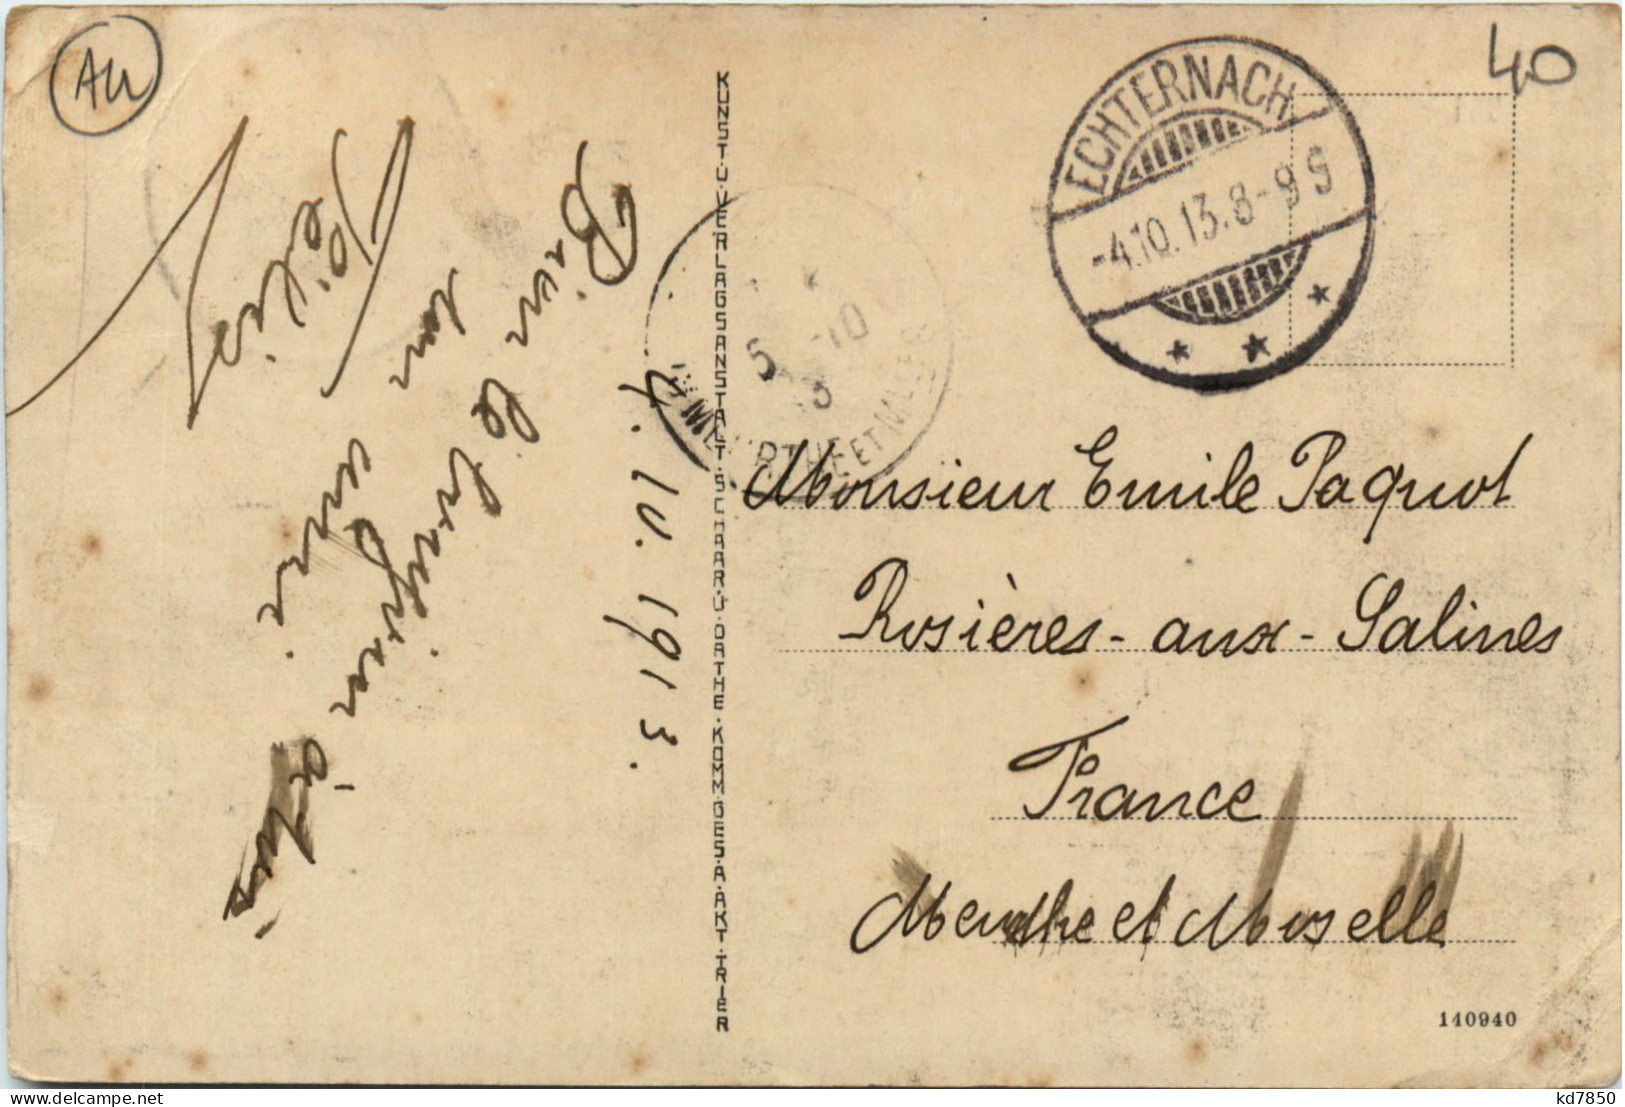 AU
40
ECHTERNACH
-4.10.13.8-9 S
5 -10
13
MEURTHE ET MOSELLE
KUNST.U.VERLAGSANSTALT.SCHAAR.U.DATHE.KOMM.GES.A.AKT.TRIER
4. 10. 1913.
Bien le
ton
à tous
une
Monsieur Emile Paquot
Rosières-aux-Salines
France
Meurthe et Moselle
140940
kd7850